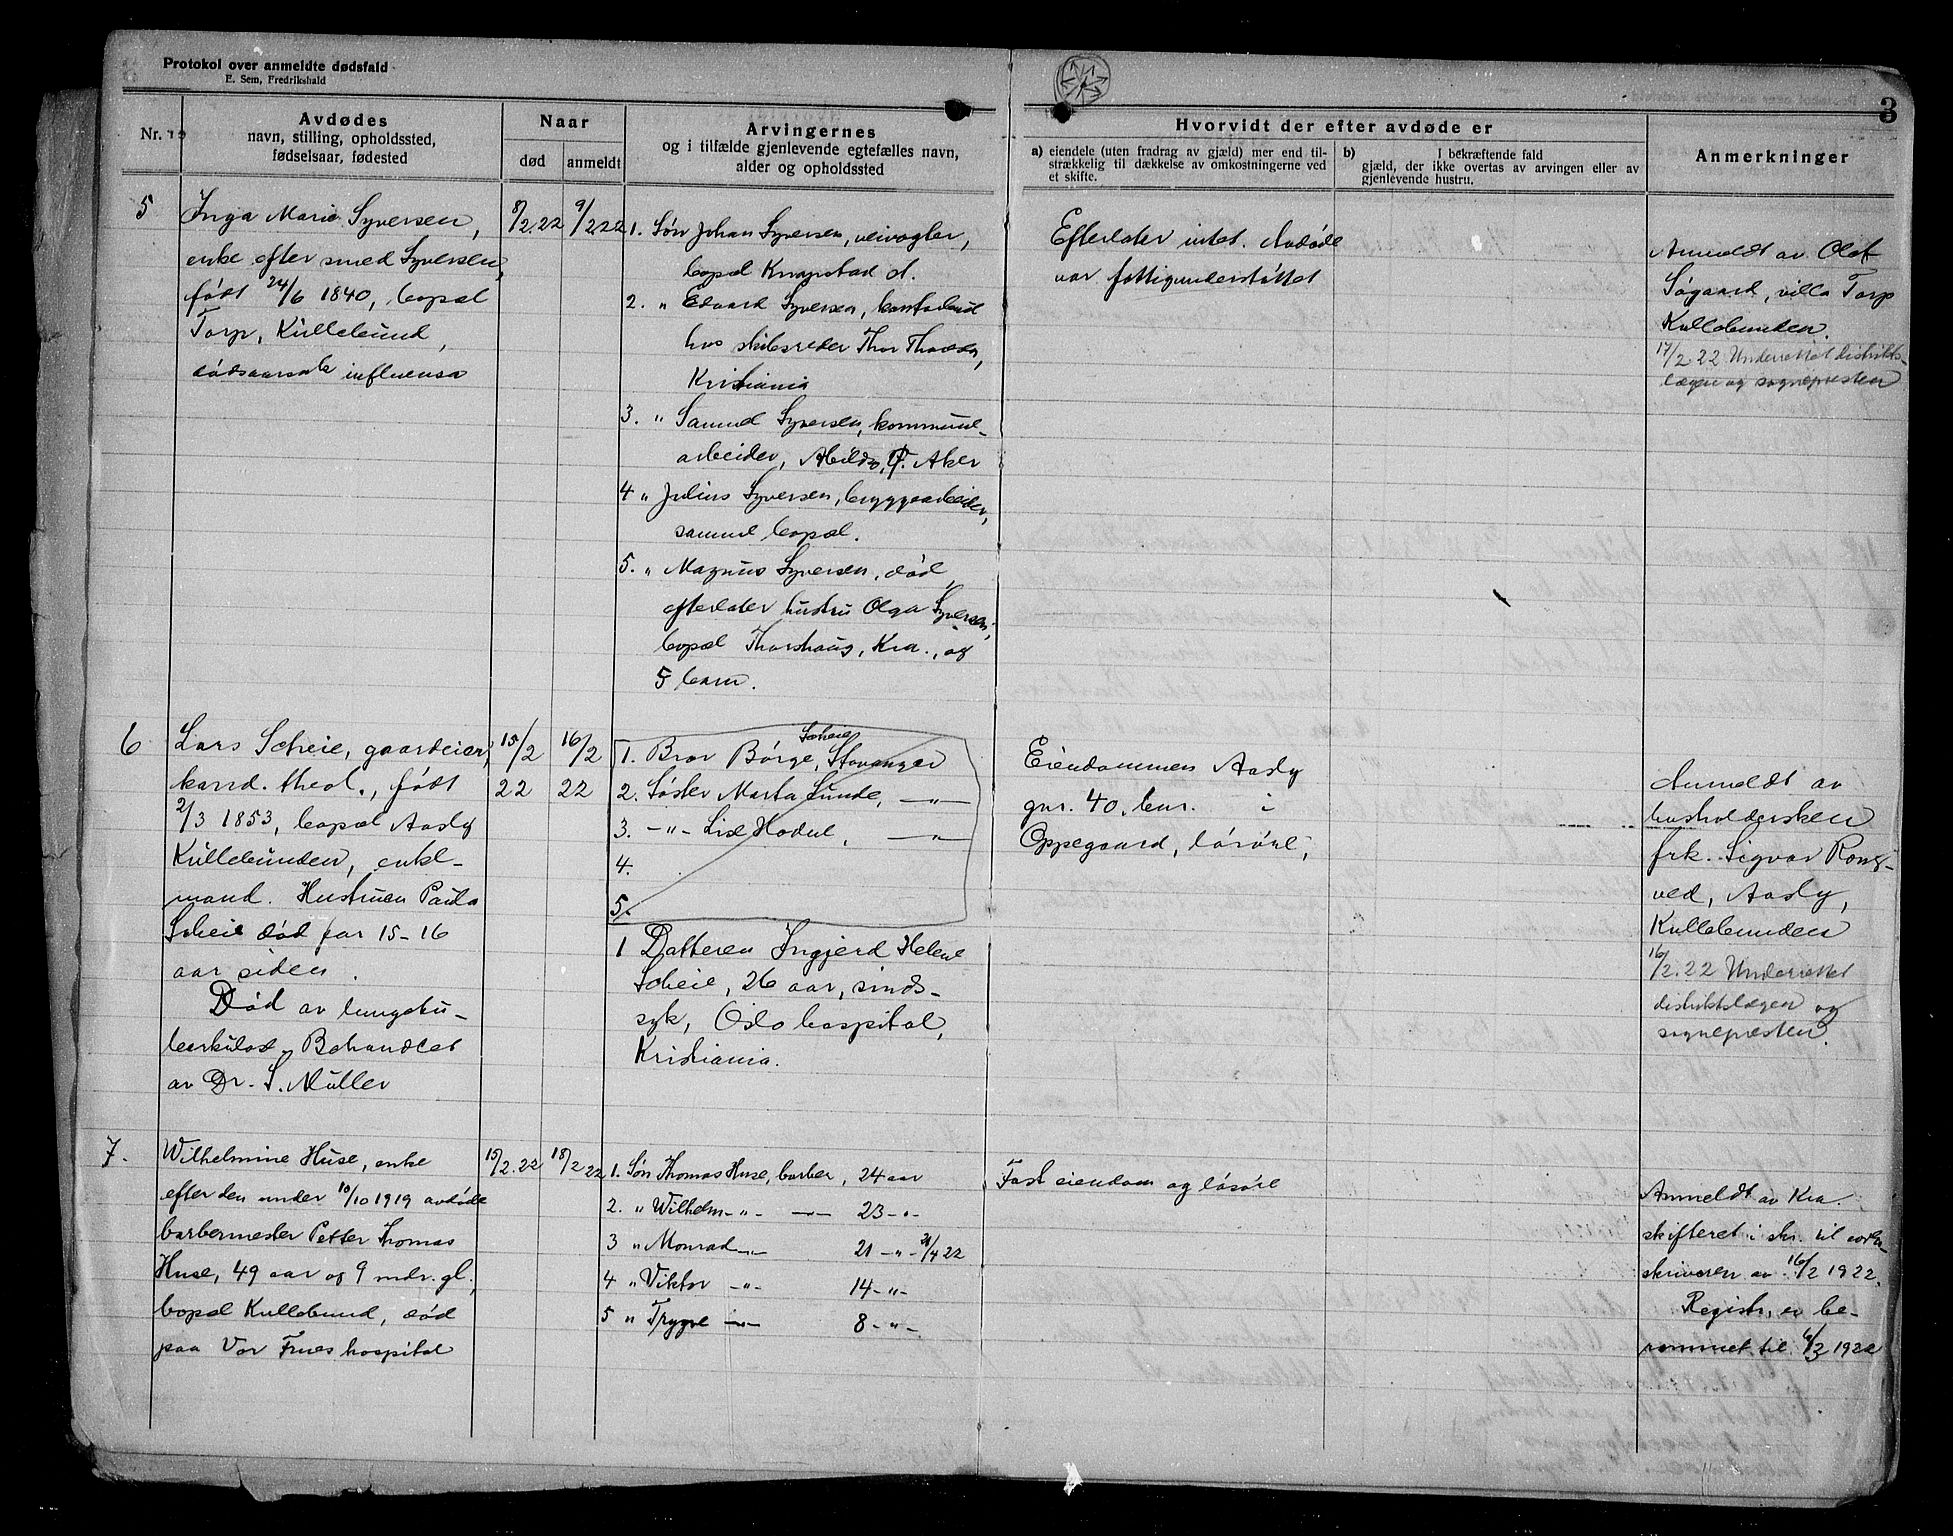 Protokol over anmeldte dødsfald
E. Sem, Fredrikshald
3
Nr.
Avdødes
navn, stilling, opholdssted,
fødselsaar, fødested
Naar
død
anmeldt
Arvingernes
og i tilfælde gjenlevende egtefælles navn,
alder og opholdssted
Hvorvidt der efter avdøde er
a) eiendele (uten fradrag av gjæld) mer end til-
strækkelig til dækkelse av omkostningerne ved
et skifte.
b) I bekræftende fald
gjæld, der ikke overtas av arvingen eller av
gjenlevende hustru.
Anmerkninger
5
Inga Marie Syversen,
enke efter smed Syversen,
født 24/6 1840, bopæl
Torp, Kullebund,
dødsaarsak influensa
8/2.22
9/2 22
1. Søn Johan Syversen, veivogter,
bopæl Knapstad st.
2. " Edvard Syversen,
hos skibsreder Thor
Kristiania
3. " Samuel Syversen, kommunal-
arbeider, Aker
4 " Julius Syversen, bryggearbeider,
samme bopæl.
5. " Magnus Syversen, død,
efterlater hustru Olga Syversen,
bopæl Thorshaug, Kra., og
5 barn.
Efterlater intet. Avdøde
var fattigunderstøttet
Anmeldt av Olaf
Søgaard, villa Torp
Kullebunden.
17/2.22 Underrettet distrikts-
lægen og sognepresten
6
Lars Scheie, gaardeier,
kand. theol., født
2/3 1853, bopæl Aasly
Kullebunden, enke-
mand. Hustruen Paula
Scheie død for 15-16
aar siden.
Død av lungetu-
berkulose. Behandlet
av Dr. S. Müller
15/2
22
16/2
22
Scheie
1. Bror Børge, Stavanger
2. Søster Marta Sunde, —"—
3. —"— Lise Hodne, —"—
4.
5.
1 Datteren Ingjerd Helene
Scheie, 26 aar, sinds-
syk, Oslo hospital,
Kristiania.
Eiendommen Aasly
gnr. 40, bnr. i
Oppegaard, løsøre,
Anmeldt av
husholdersken
frk. Sigvor Rong-
ved, Aasly,
Kullebunden
16/2.22 Underrettet
distriktslægen og
sognepresten.
7.
Wilhelmine Huse, enke
efter den under 10/10 1919 avdøde
barbermester Petter Thomas
Huse, 49 aar og 9 mdr. gl.,
bopæl Kullebund, død
paa Vor Frues hospital
15/2.22
18/2 22
1. Søn Thomas Huse, barber, 24 aar
2. " Wilhelm -"- —"— 23 -"-
3 " Monrad -"- 21 -"- /4 22
4 " Viktor -"- 14 -"-
5 " Trygve -"- 8 -"-
Fast eiendom og løsøre
Anmeldt av Kra.
skifteret i skr. til soren-
skriveren av 16/2 1922.
Registr. er be-
rammet til 6/3 1922